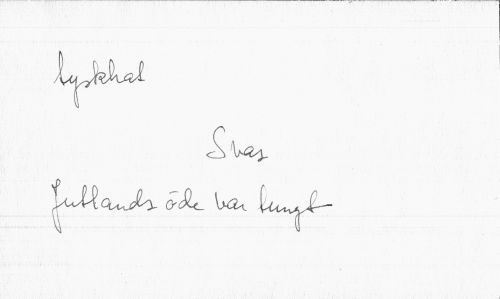 tyskhat
Svar
Jutlands öde var tungt